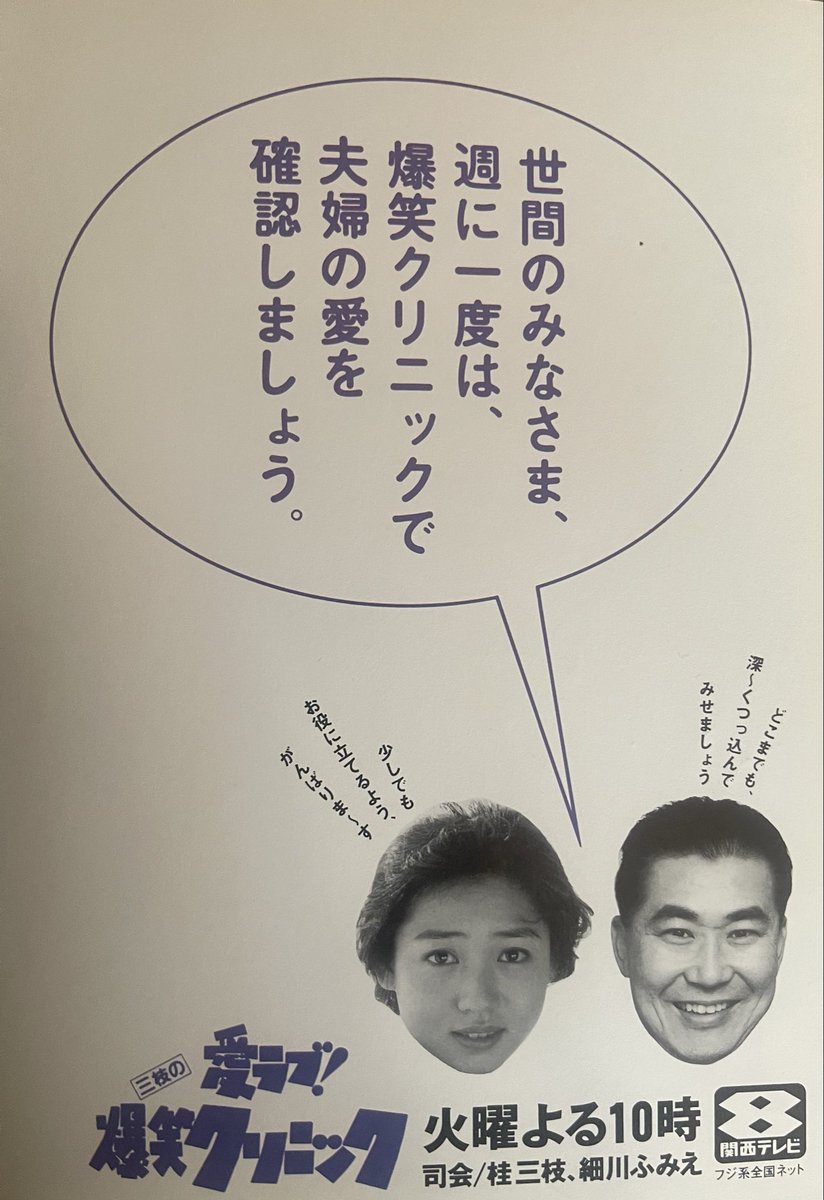 世間のみなさま、
週に一度は、
爆笑クリニックで
夫婦の愛を
確認しましょう。
どこまでも、
深〜くつっ込んで
みせましょう
少しでも
お役に立てるよう、
がんばりま〜す
三枝の
愛ラブ!
爆笑クリニック
火曜よる10時
司会/桂三枝、細川ふみえ
8
関西テレビ
フジ系全国ネット